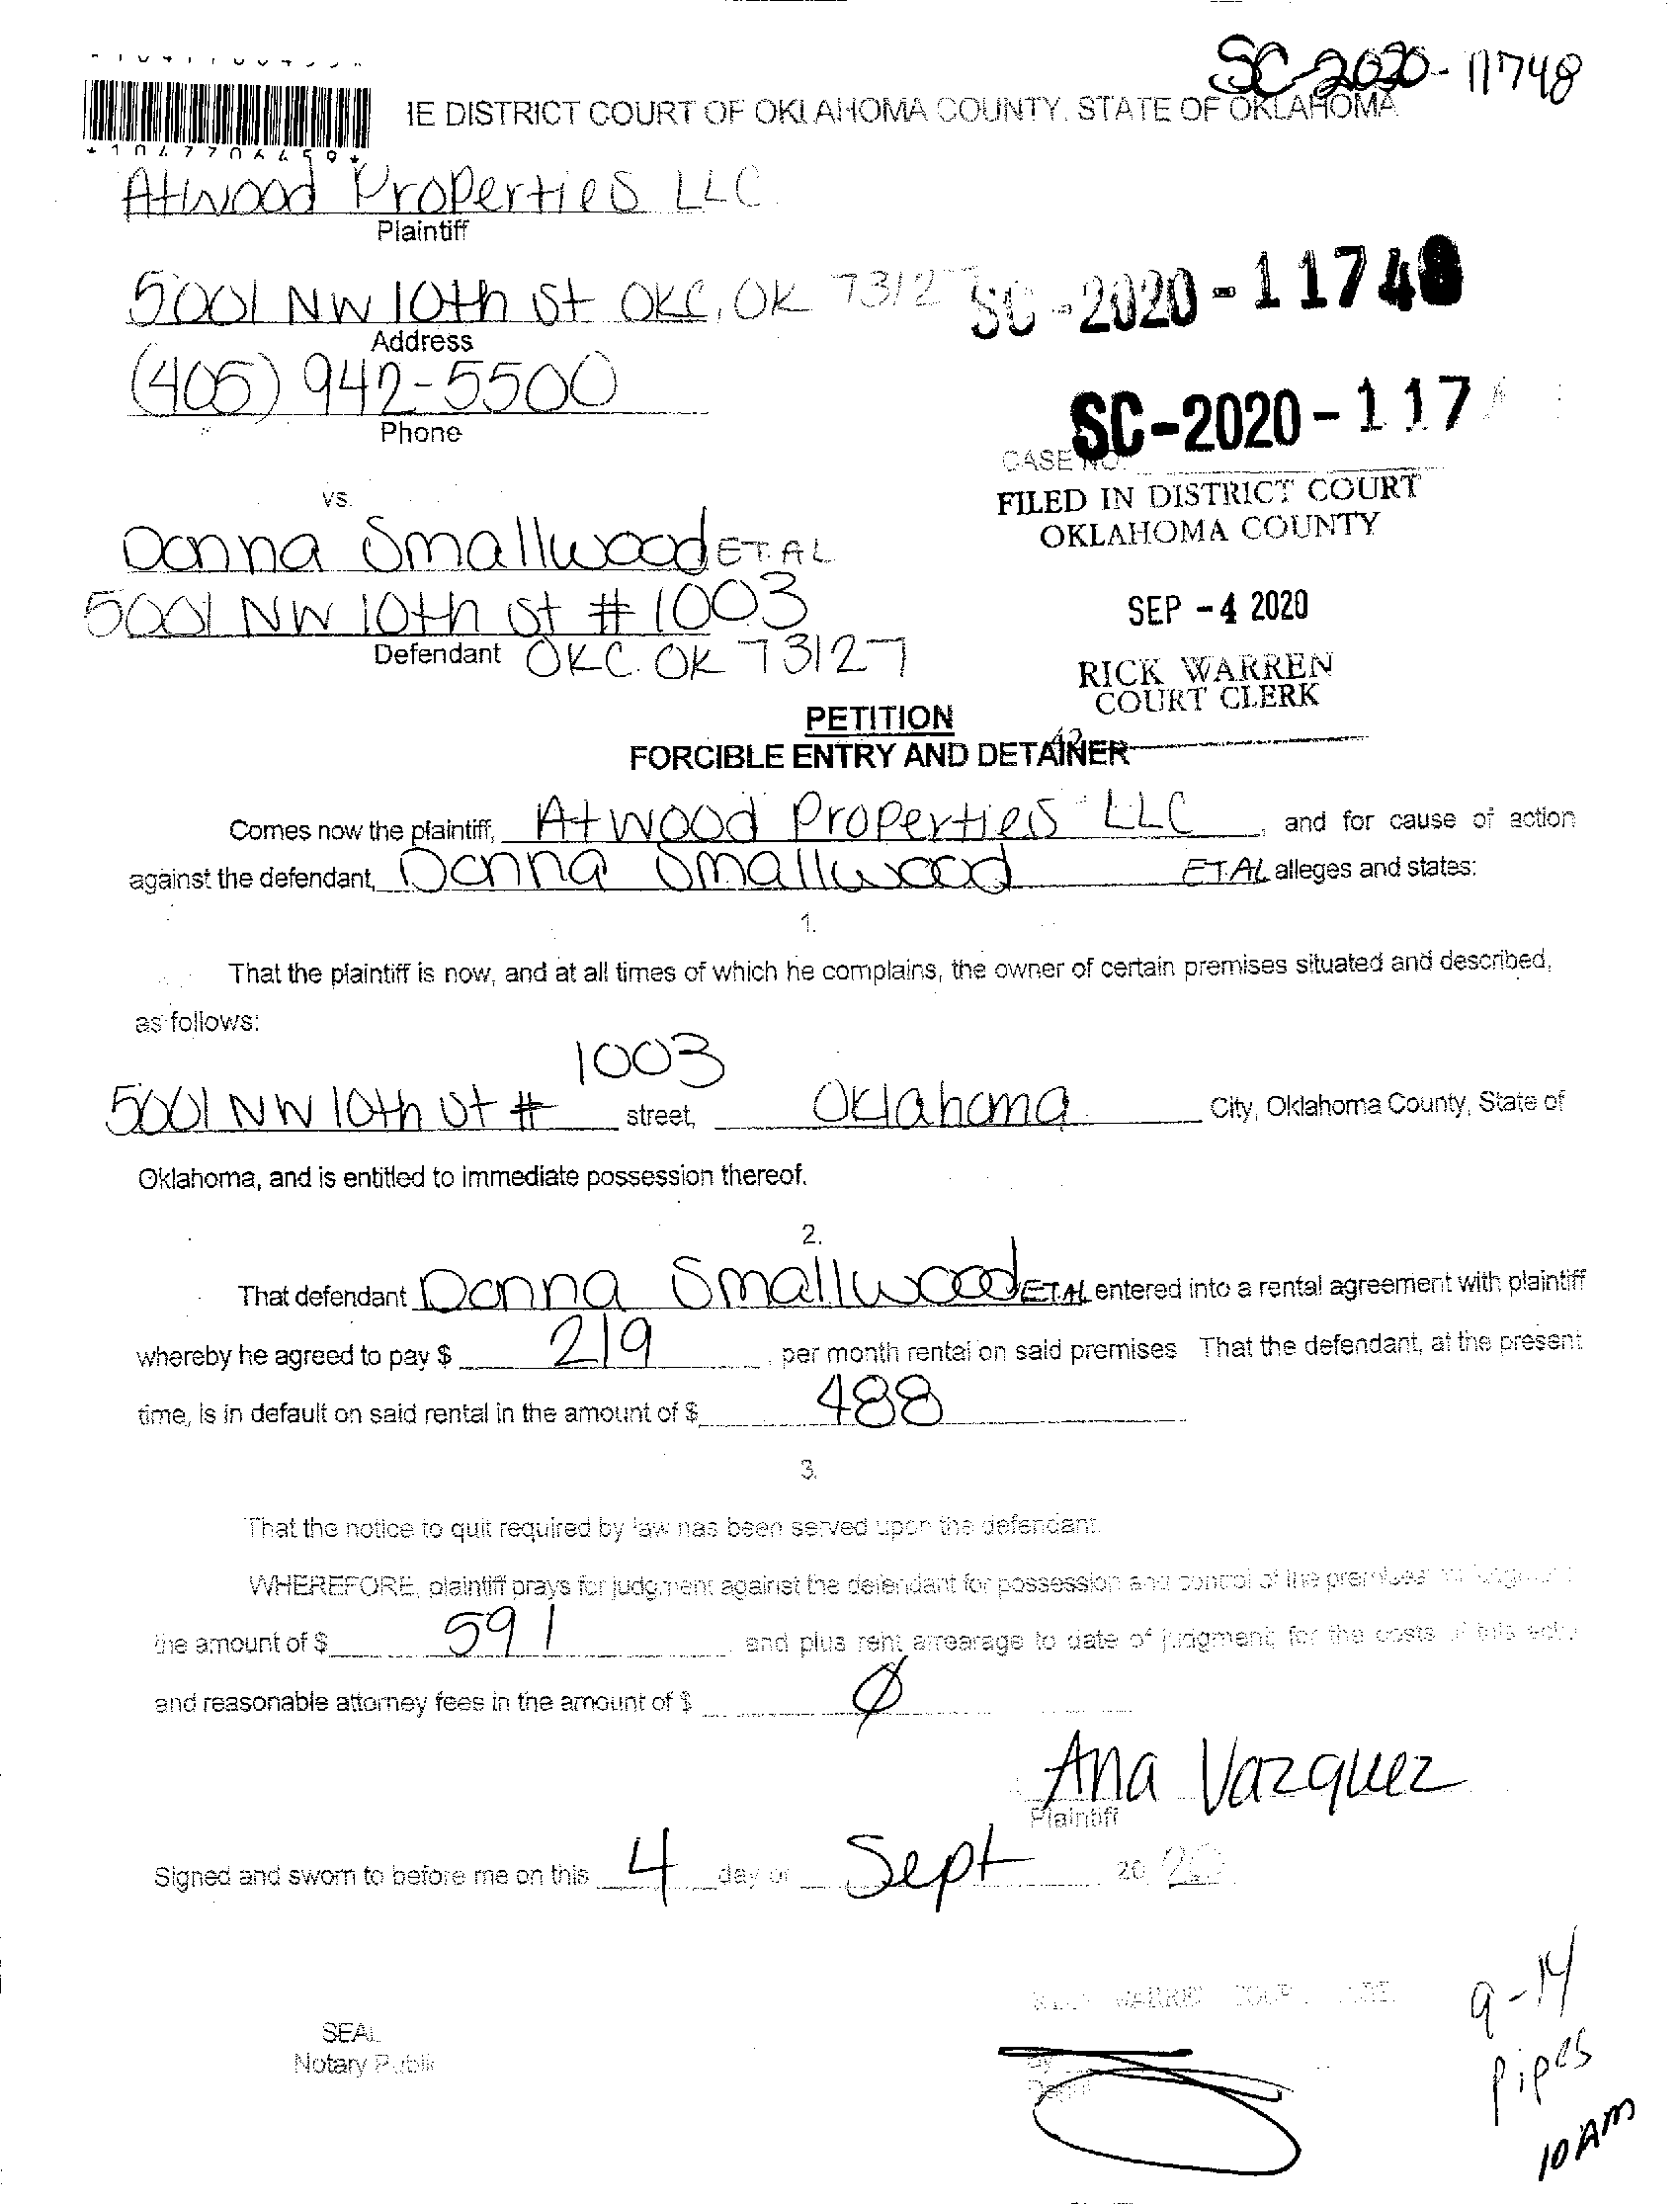 SC-2020-11748
IE DISTRICT COURT OF OKLAHOMA COUNTY, STATE OF OKLAHOMA
Atwood Properties LLC
Plaintiff
5001 NW 10th St OKC, OK 73127
SC-2020-11748
Address
(405) 942-5500
Phone
SC-2020-117
CASE NO.
vs.
FILED IN DISTRICT COURT
OKLAHOMA COUNTY
Donna Smallwood ET.AL
5001 NW 10th St # 1003
SEP -4 2020
Defendant OKC. OK 73127
RICK WARREN
COURT CLERK
PETITION
42
FORCIBLE ENTRY AND DETAINER
Comes now the plaintiff, Atwood Properties LLC, and for cause of action
against the defendant, Donna Smallwood ET.AL alleges and states:
1.
That the plaintiff is now, and at all times of which he complains, the owner of certain premises situated and described,
as follows:
1003
5001 NW 10th St # street, Oklahoma City, Oklahoma County, State of
Oklahoma, and is entitled to immediate possession thereof.
2.
That defendant Donna Smallwood ET.AL entered into a rental agreement with plaintiff
whereby he agreed to pay $ 219 per month rental on said premises That the defendant, at the present
time, is in default on said rental in the amount of $ 488
3.
That the notice to quit required by law has been served upon the defendant.
WHEREFORE, plaintiff prays for judgment against the defendant for possession and control of the premises
the amount of $ 591 and plus rent arrearage to date of judgment; for the costs of this
and reasonable attorney fees in the amount of $ Ø
Ana Vazquez
Plaintiff
Signed and sworn to before me on this 4 day of Sept 20 20
9-14
WARREN
SEAL
Notary Public
By
Pipes
10 AM